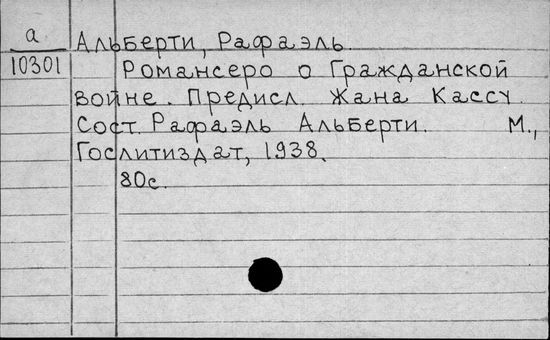 а Альберти, Рафаэль.
10301 Романсеро о Гражданской
войне. Предисл. Жана Кассу.
Сост. Рафаэль Альберти. М.,
Гослитиздат, 1938.
80с.